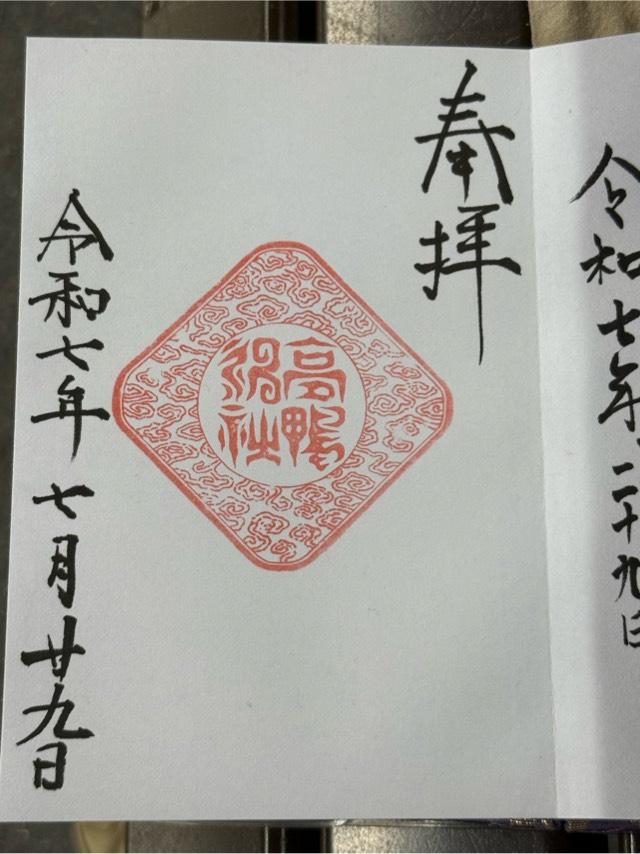 令和七年
二十九日
奉拝
高鴨
神社
令和七年七月廿九日